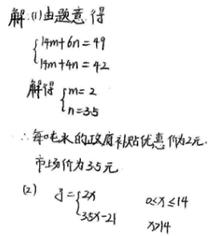 解:(1)由题意,得
{14m+6n=49
14m+4n=42
解得{m=2
n=3.5
∴每吨水的政府补贴优惠价为2元.
市场价为3.5元.
(2) y={2x 0≤x≤14
3.5x-21 x>14